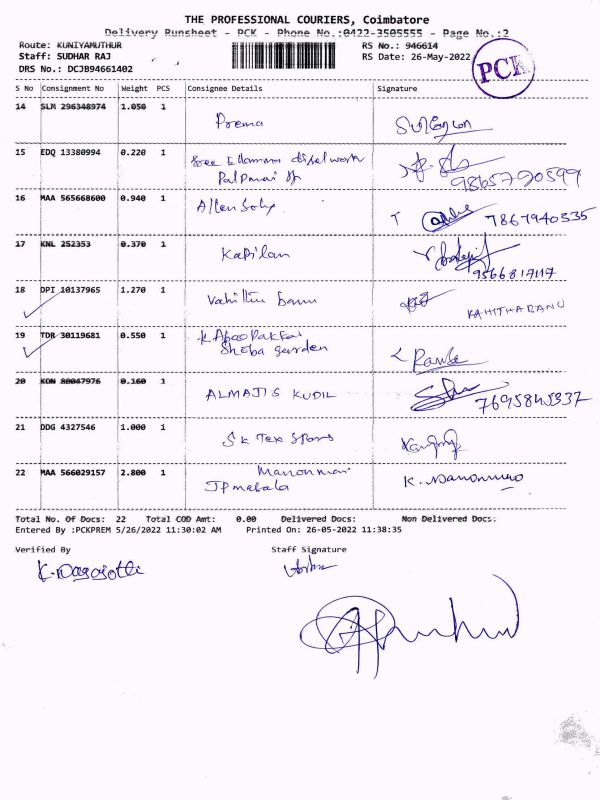 THE PROFESSIONAL COURIERS, Coimbatore
Delivery Runsheet - PCK - Phone No.:0422-3505555 - Page No.:2
Route: KUNIYAMUTHUR RS No.: 946614
Staff: SUDHAR RAJ RS Date: 26-May-2022
DRS No.: DCJB94661402
PCK
S No Consignment No Weight PCS Consignee Details Signature
14 SLM 296348974 1.050 1 Prema
15 EDQ 13380994 0.220 1
9865790599
16 MAA 565668600 0.940 1 Allen
7867940535
17 KNL 252353 0.370 1 Kapilan
9566817117
18 DPI 10137965 1.270 1 Vahithu banu KAHITHABANU
19 TDR 30119681 0.550 1
Sheba garden
20 KON 80047976 0.160 1 ALMAJIS KUDIL
7695845937
21 DDG 4327546 1.000 1 SK Tex
22 MAA 566029157 2.800 1 Manonmani
Total No. Of Docs: 22 Total COD Amt: 0.00 Delivered Docs: Non Delivered Docs:
Entered By :PCKPREM 5/26/2022 11:30:02 AM Printed On: 26-05-2022 11:38:35
Verified By Staff Signature